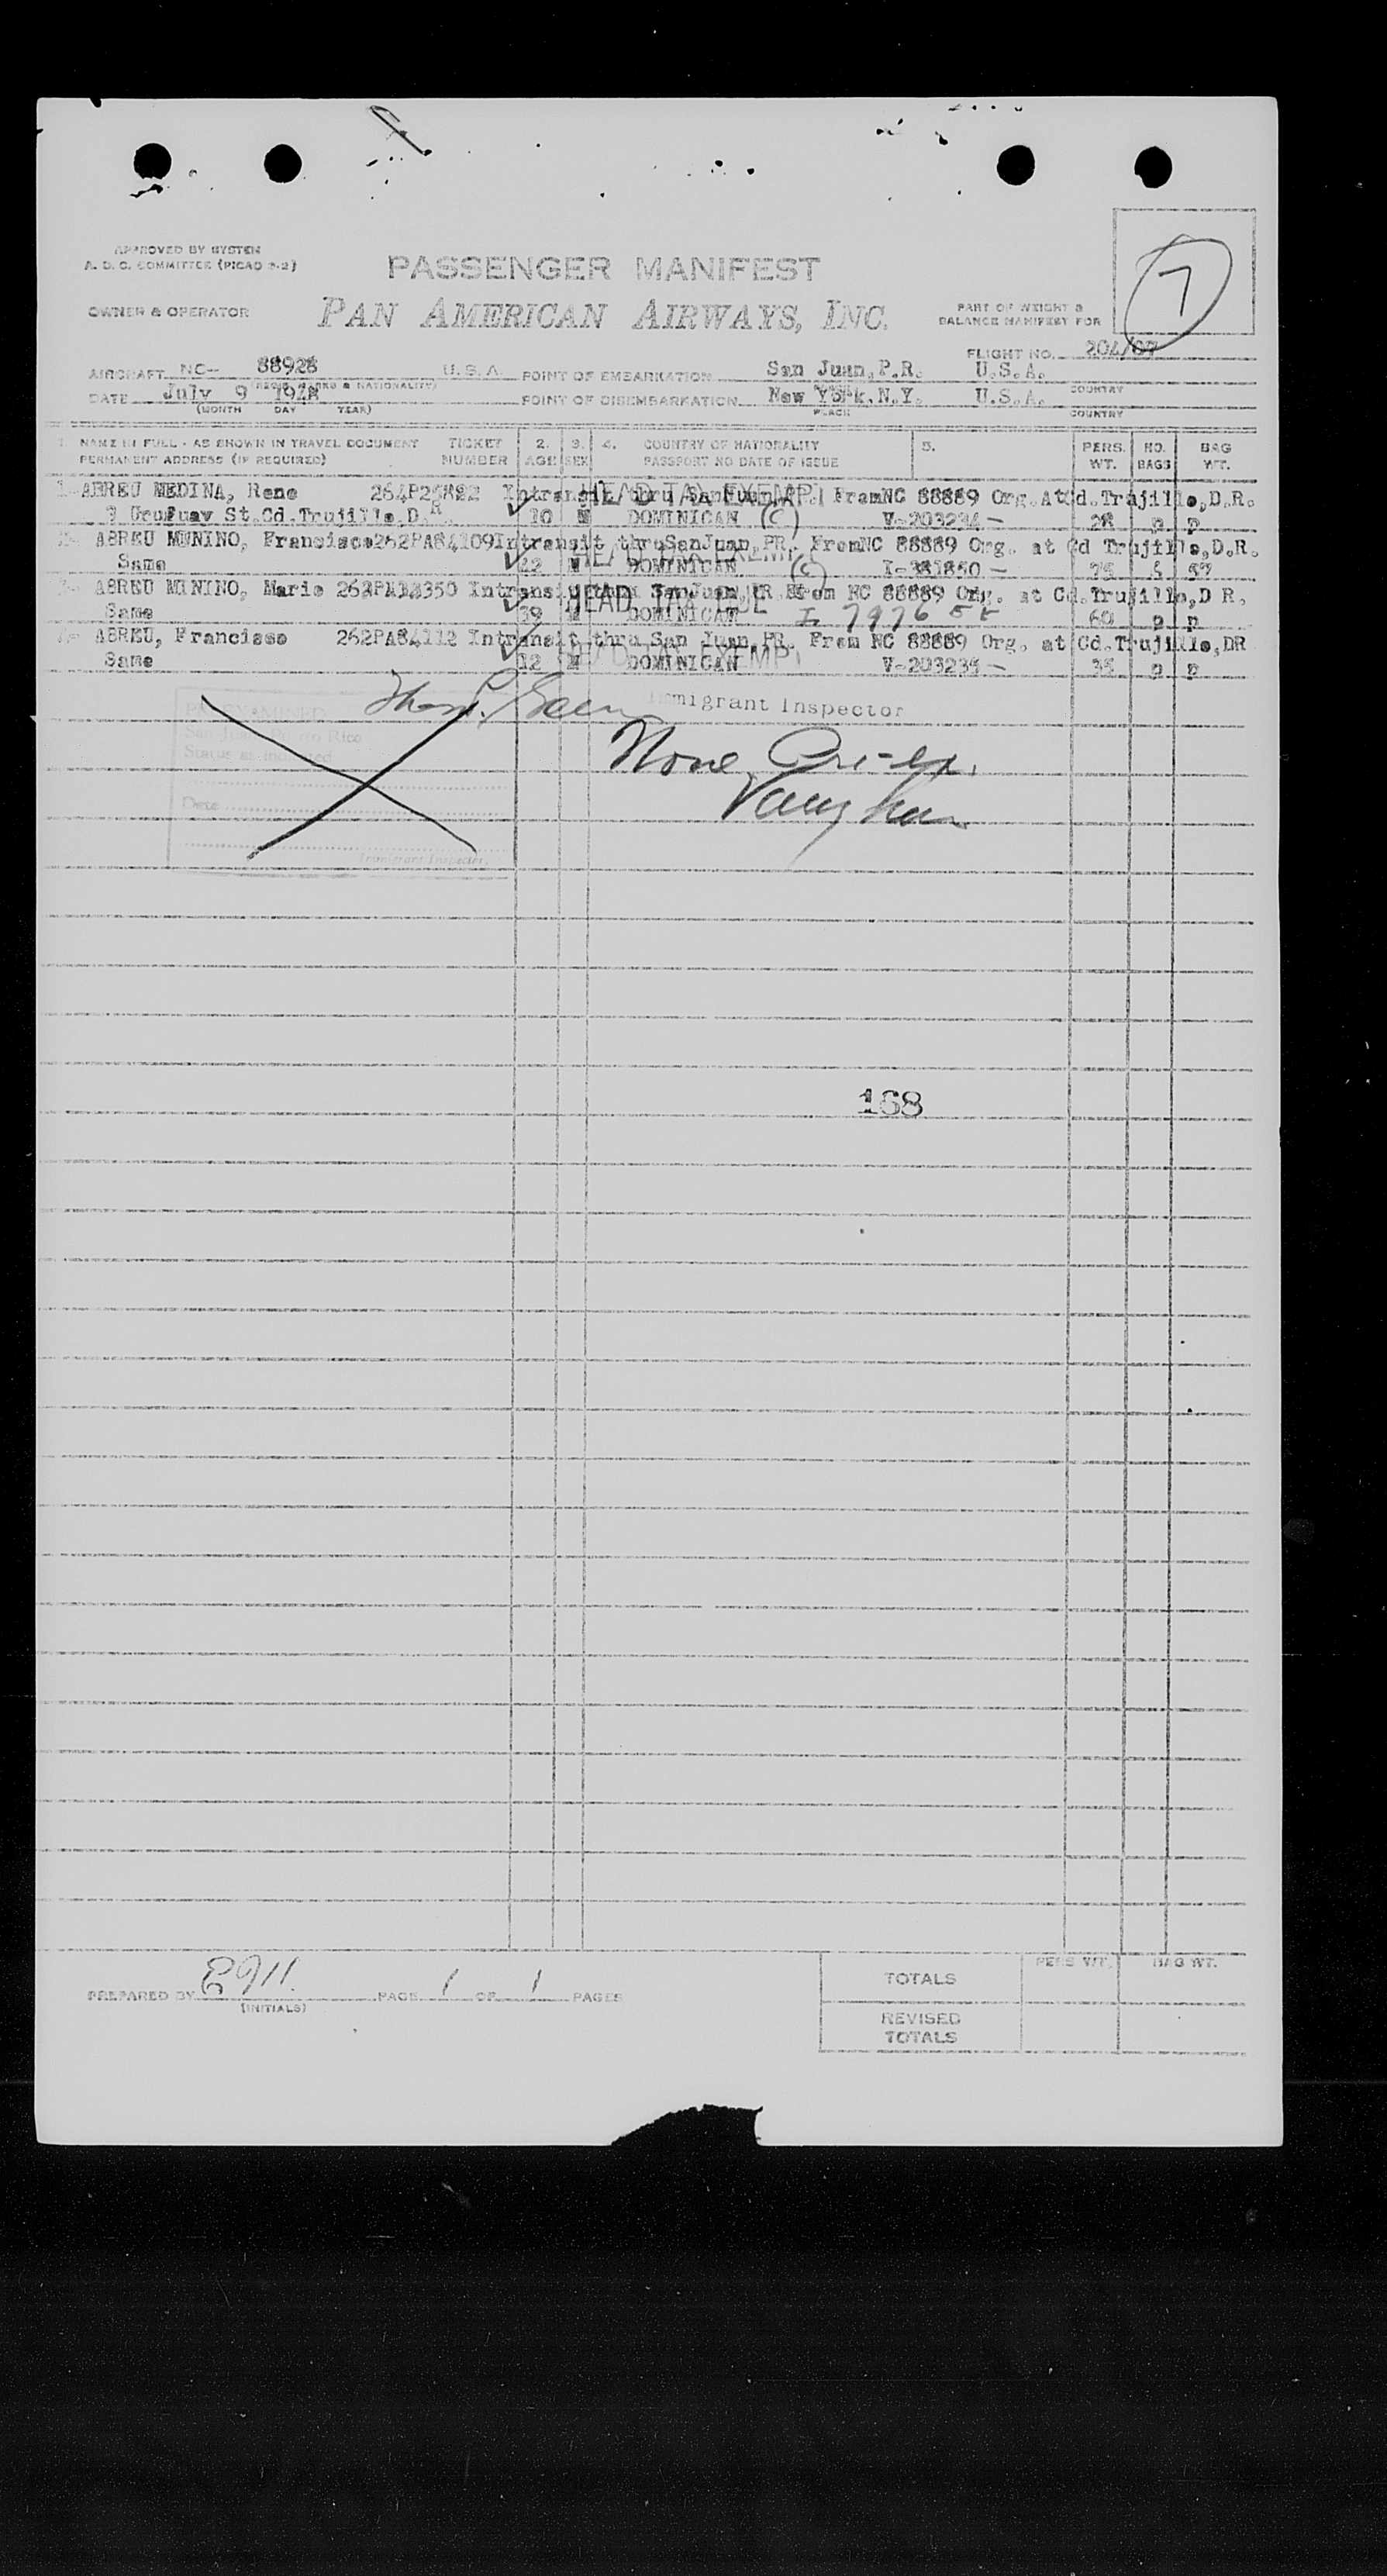 7
APPROVED BY SYSTEM
A. D. C. COMMITTEE (PICAO 9-2)
PASSENGER MANIFEST
OWNER & OPERATOR
PAN AMERICAN AIRWAYS, INC.
PART OF WEIGHT &
BALANCE MANIFEST FOR
FLIGHT NO. 204/07
AIRCRAFT NC- 88928 U. S. A. POINT OF EMBARKATION San Juan,P.R. U.S.A.
DATE July 9 1948 POINT OF DISEMBARKATION New York,N.Y. U.S.A. COUNTRY
(MONTH DAY YEAR) PLACE COUNTRY
1. NAME IN FULL - AS SHOWN IN TRAVEL DOCUMENT TICKET 2. 3. 4. COUNTRY OF NATIONALITY 5. PERS. NO. BAG
PERMANENT ADDRESS (IF REQUIRED) NUMBER AGE SEX PASSPORT NO DATE OF ISSUE WT. BAGS WT.
ABREU MEDINA, Rene Intransit thru San Juan, FromNC 88889 Org.AtCd.Trujillo,D.R.
HEAD TAX EXEMPT
St.Cd.Trujillo,D.R. 10 M DOMINICAN (C) V-203234- 28 p p
ABREU MUNINO, Francisco262PA84109Intransit thruSanJuan,PR. FromNC 88889 Org. at Cd Trujillo,D.R.
HEAD TAX EXEMPT
Same M DOMINICAN (C)
ABREU MUNINO, Mario Intransit thru San Juan,PR From NC 88889 Org. at Cd.Trujillo,D R.
HEAD TAX
Same 39 M DOMINICAN 60 p p
ABREU, Francisco 262PA84112 Intransit thru San Juan,PR. From NC 88889 Org. at Cd.Trujillo,DR
HEAD TAX EXEMPT
Same 12 M DOMINICAN p p
Immigrant Inspector
San Juan, Puerto Rico
Status as indicated
None Pre-ex.
Vaughan
Date
Immigrant Inspector.
168
PREPARED BY
(INITIALS)
PAGE 1 OF 1 PAGES
PERS WT. BAG WT.
TOTALS
REVISED
TOTALS